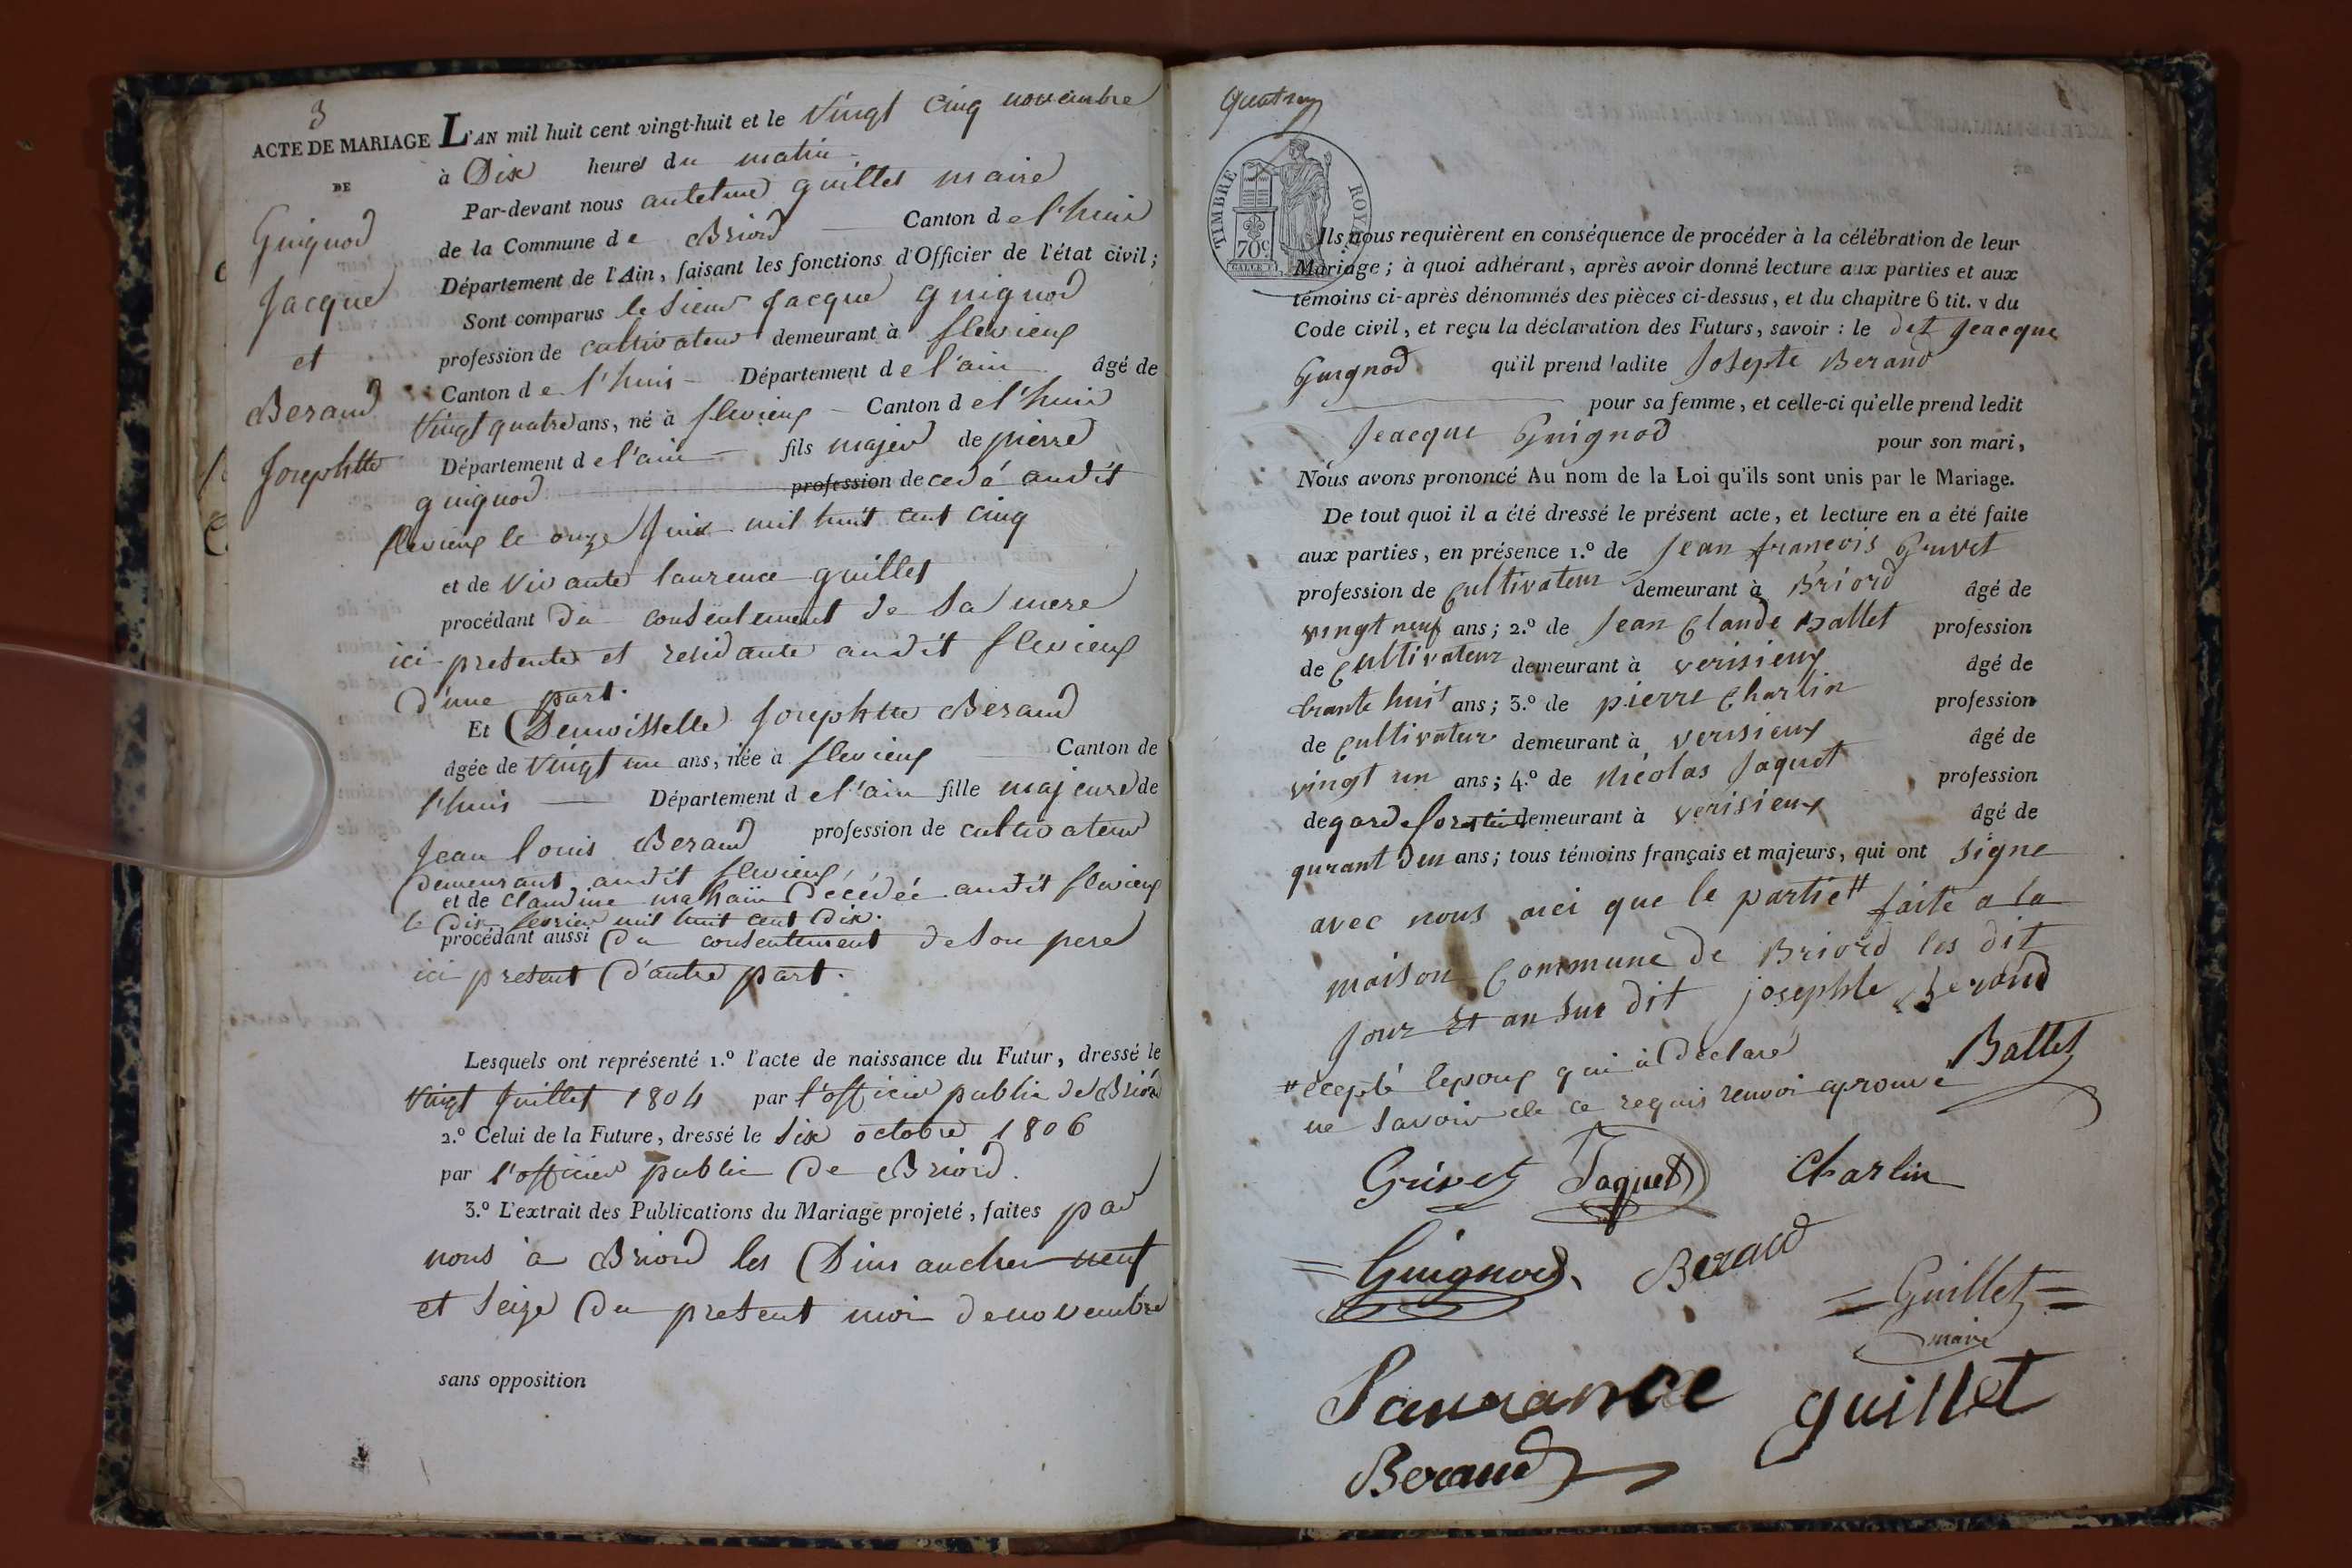 3
ACTE DE MARIAGE
DE
Guignod
Jacque
et
Beraud
Josephtte
L'AN mil huit cent vingt-huit et le vingt cinq novembre
à Dix heures du matin
Par-devant nous antelme guillet maire
de la Commune de Briord Canton de l'huis
Département de l'Ain, faisant les fonctions d'Officier de l'état civil;
Sont comparus le sieur Jacque guignod
profession de cultivateur demeurant à flevieux
Canton de l'huis Département de l'ain âgé de
vingt quatre ans, né à flevieux Canton de l'huis
Département de l'ain fils majeur de pierre
guignod profession decedé audit
flevieux le onze Juin mil huit cent cinq
et de vivante laurence guillet
procédant du consentement de sa mere
ici presente et residante audit flevieux
d'une part.
Et Demoisselle Josephtte Beraud
âgée de vingt un ans, née à flevieux Canton de
l'huis Département de l'ain fille majeure de
Jean louis Beraud profession de cultivateur
demeurant audit flevieux,
et de claudine decédée audit flevieux
le dix fevrier mil huit cent dix.
procédant aussi du consentement de son pere
ici present d'autre part.
Lesquels ont représenté 1.º l'acte de naissance du Futur, dressé le
vingt Juillet 1804 par l'officier public de Briord
2.º Celui de la Future, dressé le six octobre 1806
par l'officier public de Briord.
3.º L'extrait des Publications du Mariage projeté, faites par
nous à Briord les Dimanches neuf
et seize du present moi de novembre
sans opposition
TIMBRE ROYAL
70c
Ils nous requièrent en conséquence de procéder à la célébration de leur
Mariage; à quoi adhérant, après avoir donné lecture aux parties et aux
témoins ci-après dénommés des pièces ci-dessus, et du chapitre 6 tit. v du
Code civil, et reçu la déclaration des Futurs, savoir: le dit Jeacque
Guignod qu'il prend ladite Josepte Beraud
pour sa femme, et celle-ci qu'elle prend ledit
Jeacque Guignod pour son mari,
Nous avons prononcé Au nom de la Loi qu'ils sont unis par le Mariage.
De tout quoi il a été dressé le présent acte, et lecture en a été faite
aux parties, en présence 1.º de Jean françois Grivet
profession de Cultivateur demeurant à Briord âgé de
vingt neuf ans; 2.º de Jean Claude Ballet profession
de Cultivateur demeurant à verisieux âgé de
trante huit ans; 3.º de pierre Charlin profession
de Cultivateur demeurant à verisieux âgé de
vingt un ans; 4.º de nicolas Jaquet profession
de garde forestier demeurant à verisieux âgé de
qurant deu ans; tous témoins français et majeurs, qui ont signe
avec nous aici que le partie # faite a la
maison Commune de Briord les dit
Jour et an sus dit josephte Beraud
# ecepté lepoux qui à déclaré
ne savoir de ce requis renvoi aprouvé Ballet
Grivet Jaquet Charlin
Guignod Beraud
Guillet
maire
Laurance guillet
Beraud